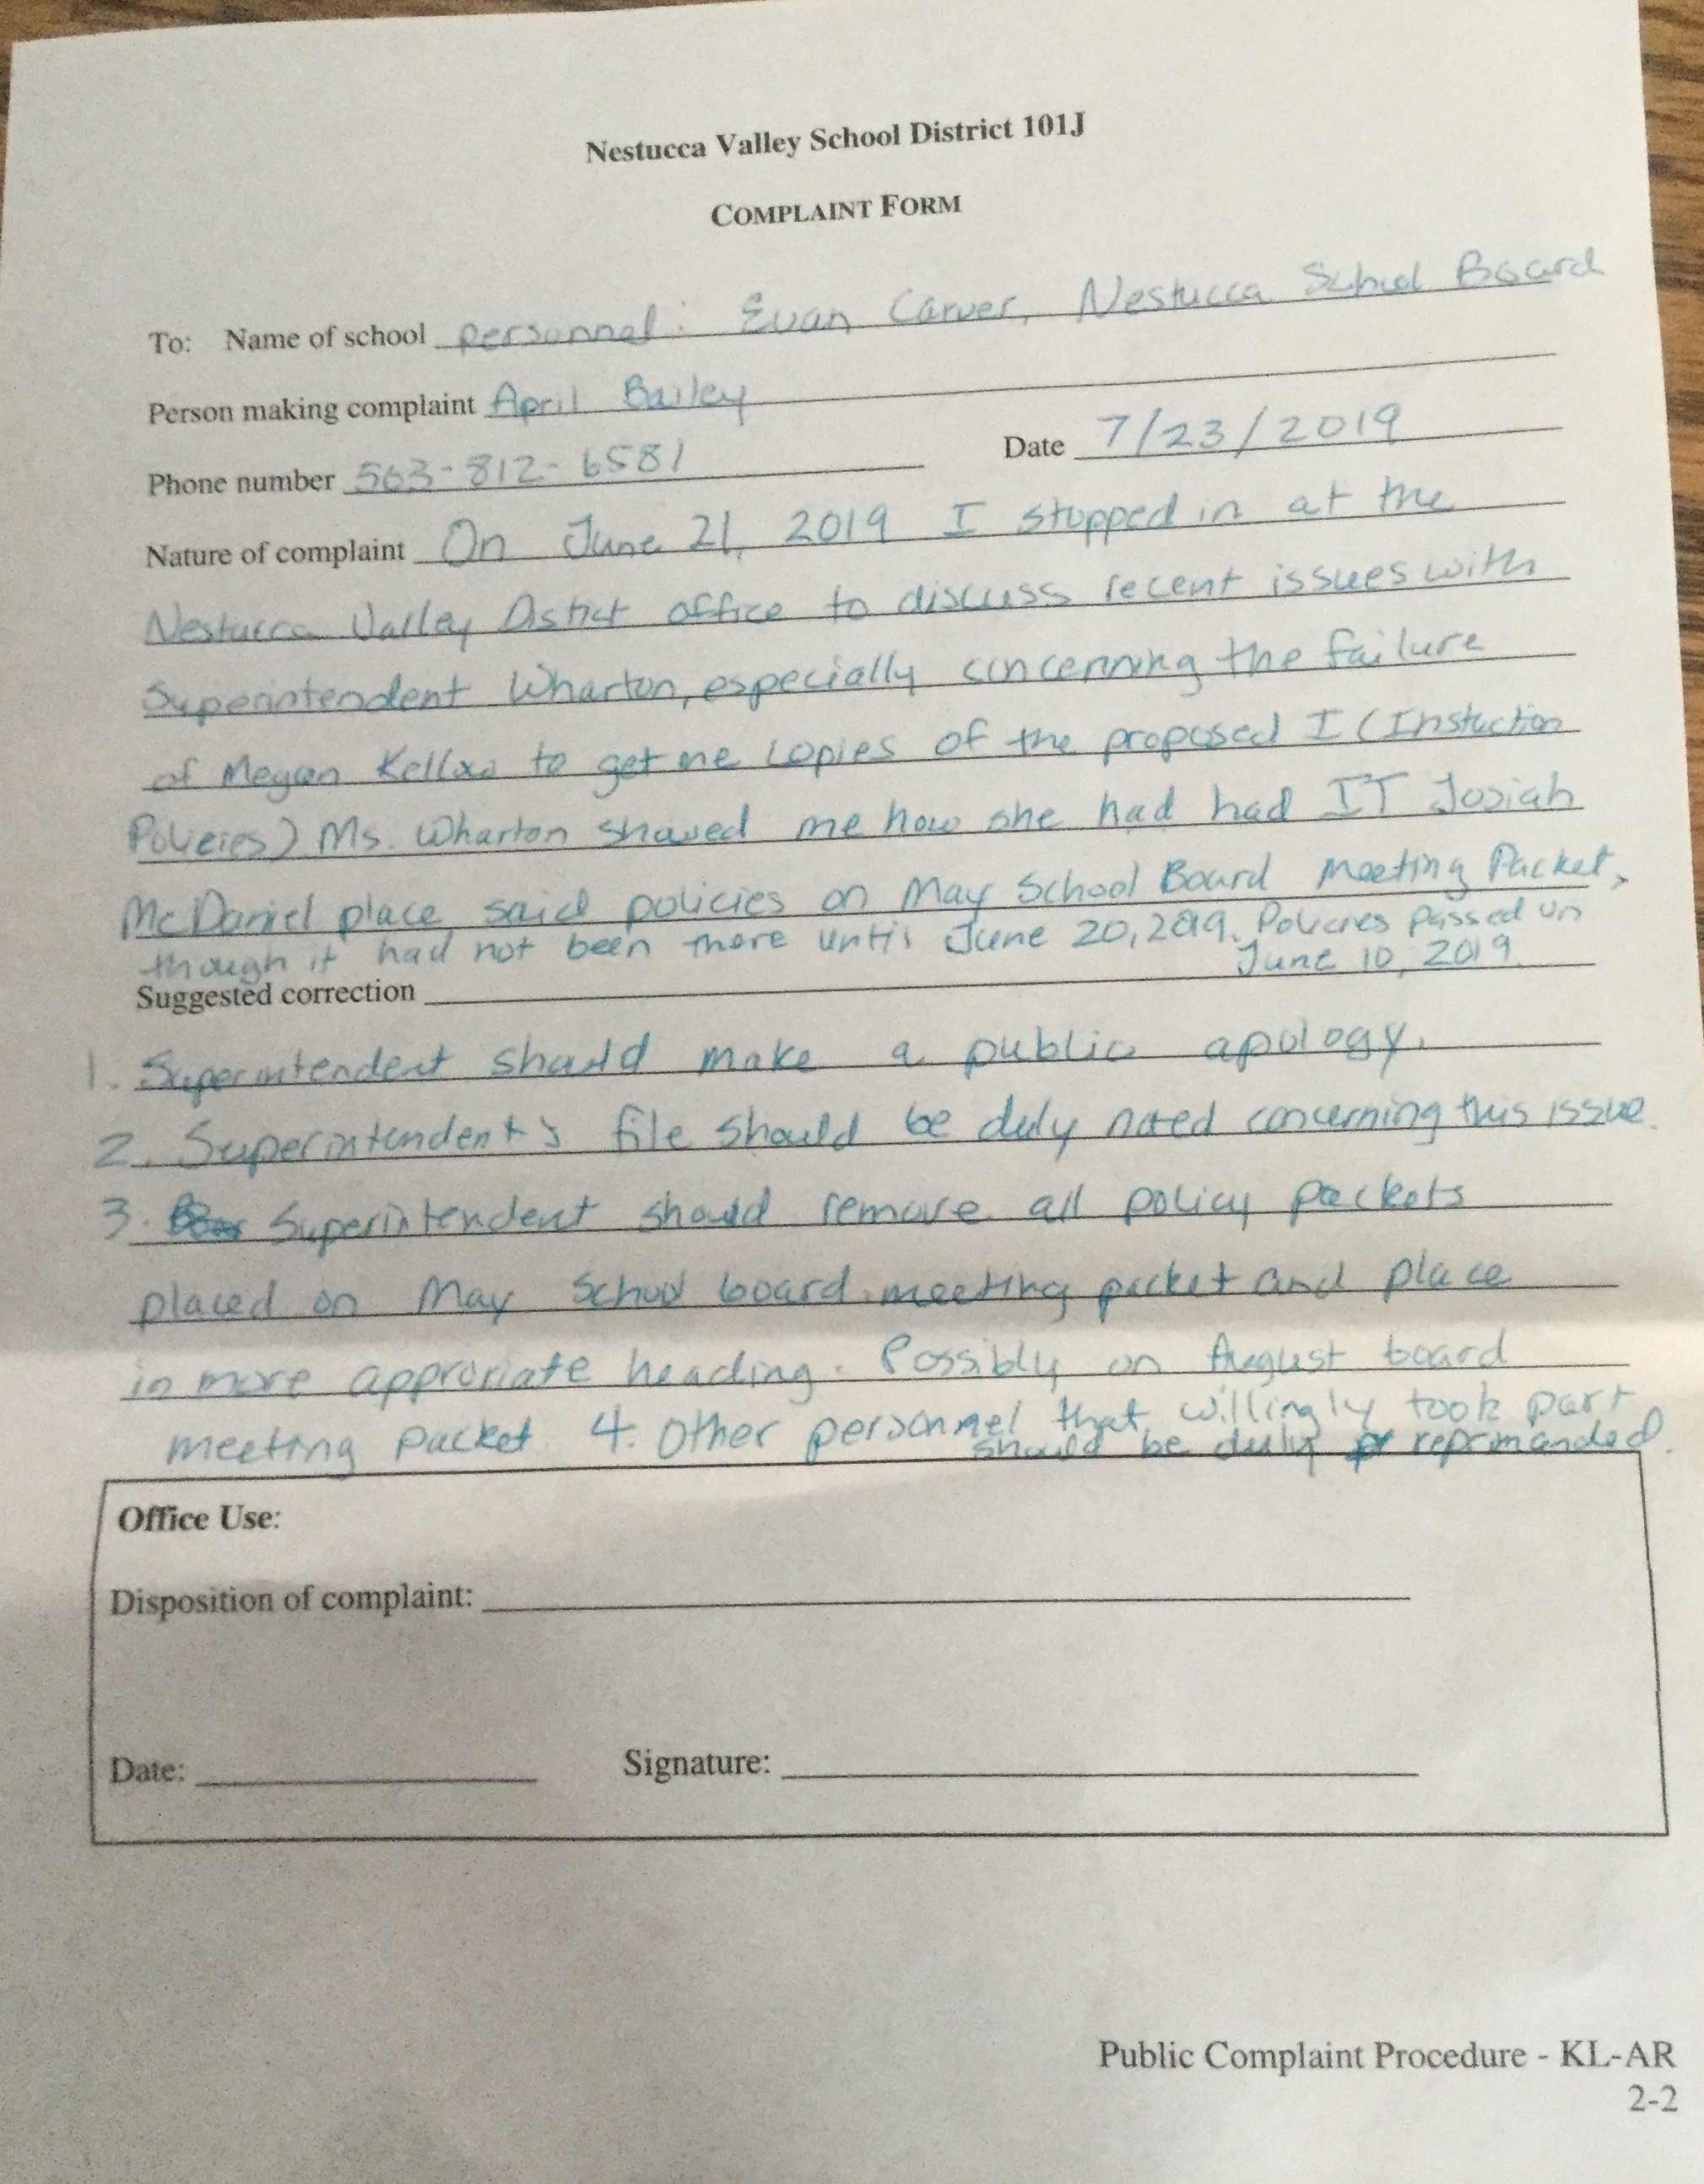 Nestucca Valley School District 101J
COMPLAINT FORM
To: Name of school personnel: Evan Carver, Nestucca School Board
Person making complaint April Bailey
Phone number 563-812-6581 Date 7/23/2019
Nature of complaint On June 21, 2019 I stopped in at the
Nestucca Valley Distict office to discuss recent issues with
Superintendent Wharton, especially concerning the failure
of Megan Kellow to get me copies of the proposed I (Instuction
Policies) Ms. Wharton showed me how she had had IT Josiah
McDaniel place said policies on May School Board Meeting Packet,
though it had not been there until June 20, 2019. Policies passed on
June 10, 2019.
Suggested correction
1. Superintendent should make a public apology.
2. Superintendent's file should be duly noted concerning this issue.
3. Superintendent should remove all policy packets
placed on May School board meeting packet and place
in more approriate heading. Possibly on August board
meeting packet 4. Other personnel that willingly took part
should be duly reprimanded.
Office Use:
Disposition of complaint:
Date: Signature:
Public Complaint Procedure - KL-AR
2-2